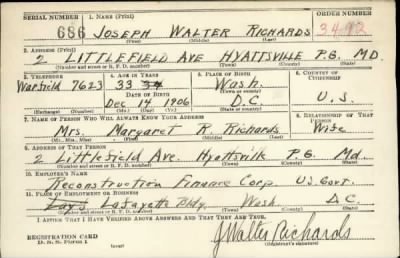 SERIAL NUMBER 1. NAME (Print) ORDER NUMBER
686 JOSEPH WALTER RICHARDS 3492
(First) (Middle) (Last)
2. ADDRESS (Print)
2 LITTLEFIELD AVE HYATTSVILLE P.G. MD.
(Number and street or R. F. D. number) (Town) (County) (State)
3. TELEPHONE 4. AGE IN YEARS 5. PLACE OF BIRTH 6. COUNTRY OF CITIZENSHIP
Warfield 7623 33 34 Wash.
DATE OF BIRTH (Town or county)
Dec 14 1906 D.C. U.S.
(Exchange) (Number) (Mo.) (Day) (Yr.) (State or country)
7. NAME OF PERSON WHO WILL ALWAYS KNOW YOUR ADDRESS 8. RELATIONSHIP OF THAT PERSON
Mrs. Margaret R. Richards Wife
(Mr., Mrs., Miss) (First) (Middle) (Last)
9. ADDRESS OF THAT PERSON
2 Littlefield Ave. Hyattsville P.G. Md.
(Number and street or R. F. D. number) (Town) (County) (State)
10. EMPLOYER'S NAME
Reconstruction Finance Corp. U.S. Govt.
11. PLACE OF EMPLOYMENT OR BUSINESS
Lafayette Bldg. Wash D.C.
(Number and street or R. F. D. number) (Town) (County) (State)
I AFFIRM THAT I HAVE VERIFIED ABOVE ANSWERS AND THAT THEY ARE TRUE.
REGISTRATION CARD
D. S. S. Form 1 (over) J Walter Richards
(Registrant's signature)